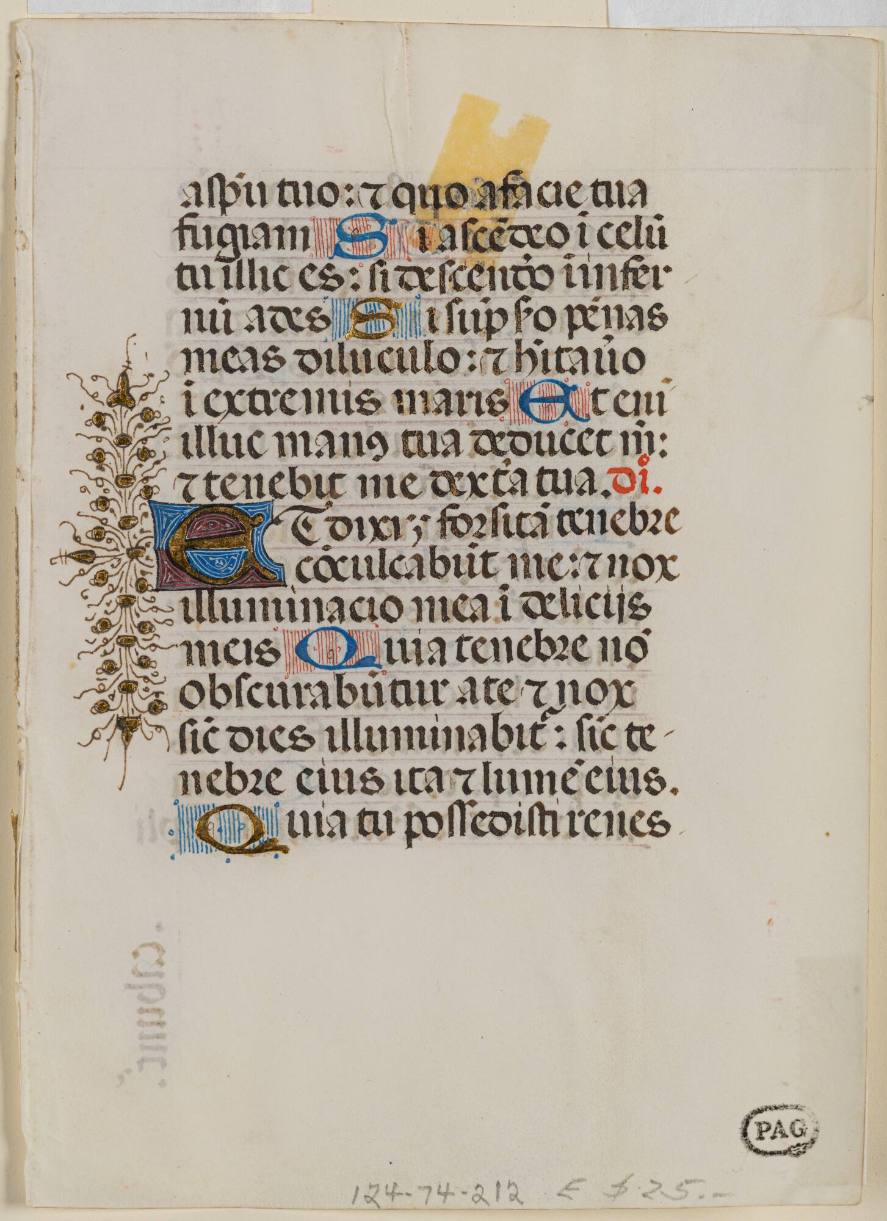 aspũ tuo: ⁊ quo a facie tua
fugiam Si ascẽdeo ĩ celũ
tu illic es: si descendo ĩ infer
nũ ades Si sũpso pẽnas
meas diluculo: ⁊ hĩtaũo
ĩ extremis maris Et eni
illuc manꝰ tua deducet m̃:
⁊ tenebit me dext̃a tua. di.
ET dixi⁊ forsitã tenebre
cõculcabũt me: ⁊ nox
illuminacio mea ĩ deliciis
meis Quia tenebre nõ
obscurabũtur a te ⁊ nox
sic̃ dies illuminabit̃: sic̃ te-
nebre eius ita ⁊ lumẽ eius.
Quia tu possedisti renes
cabunt.
PAG
124-74-212 E $25.-